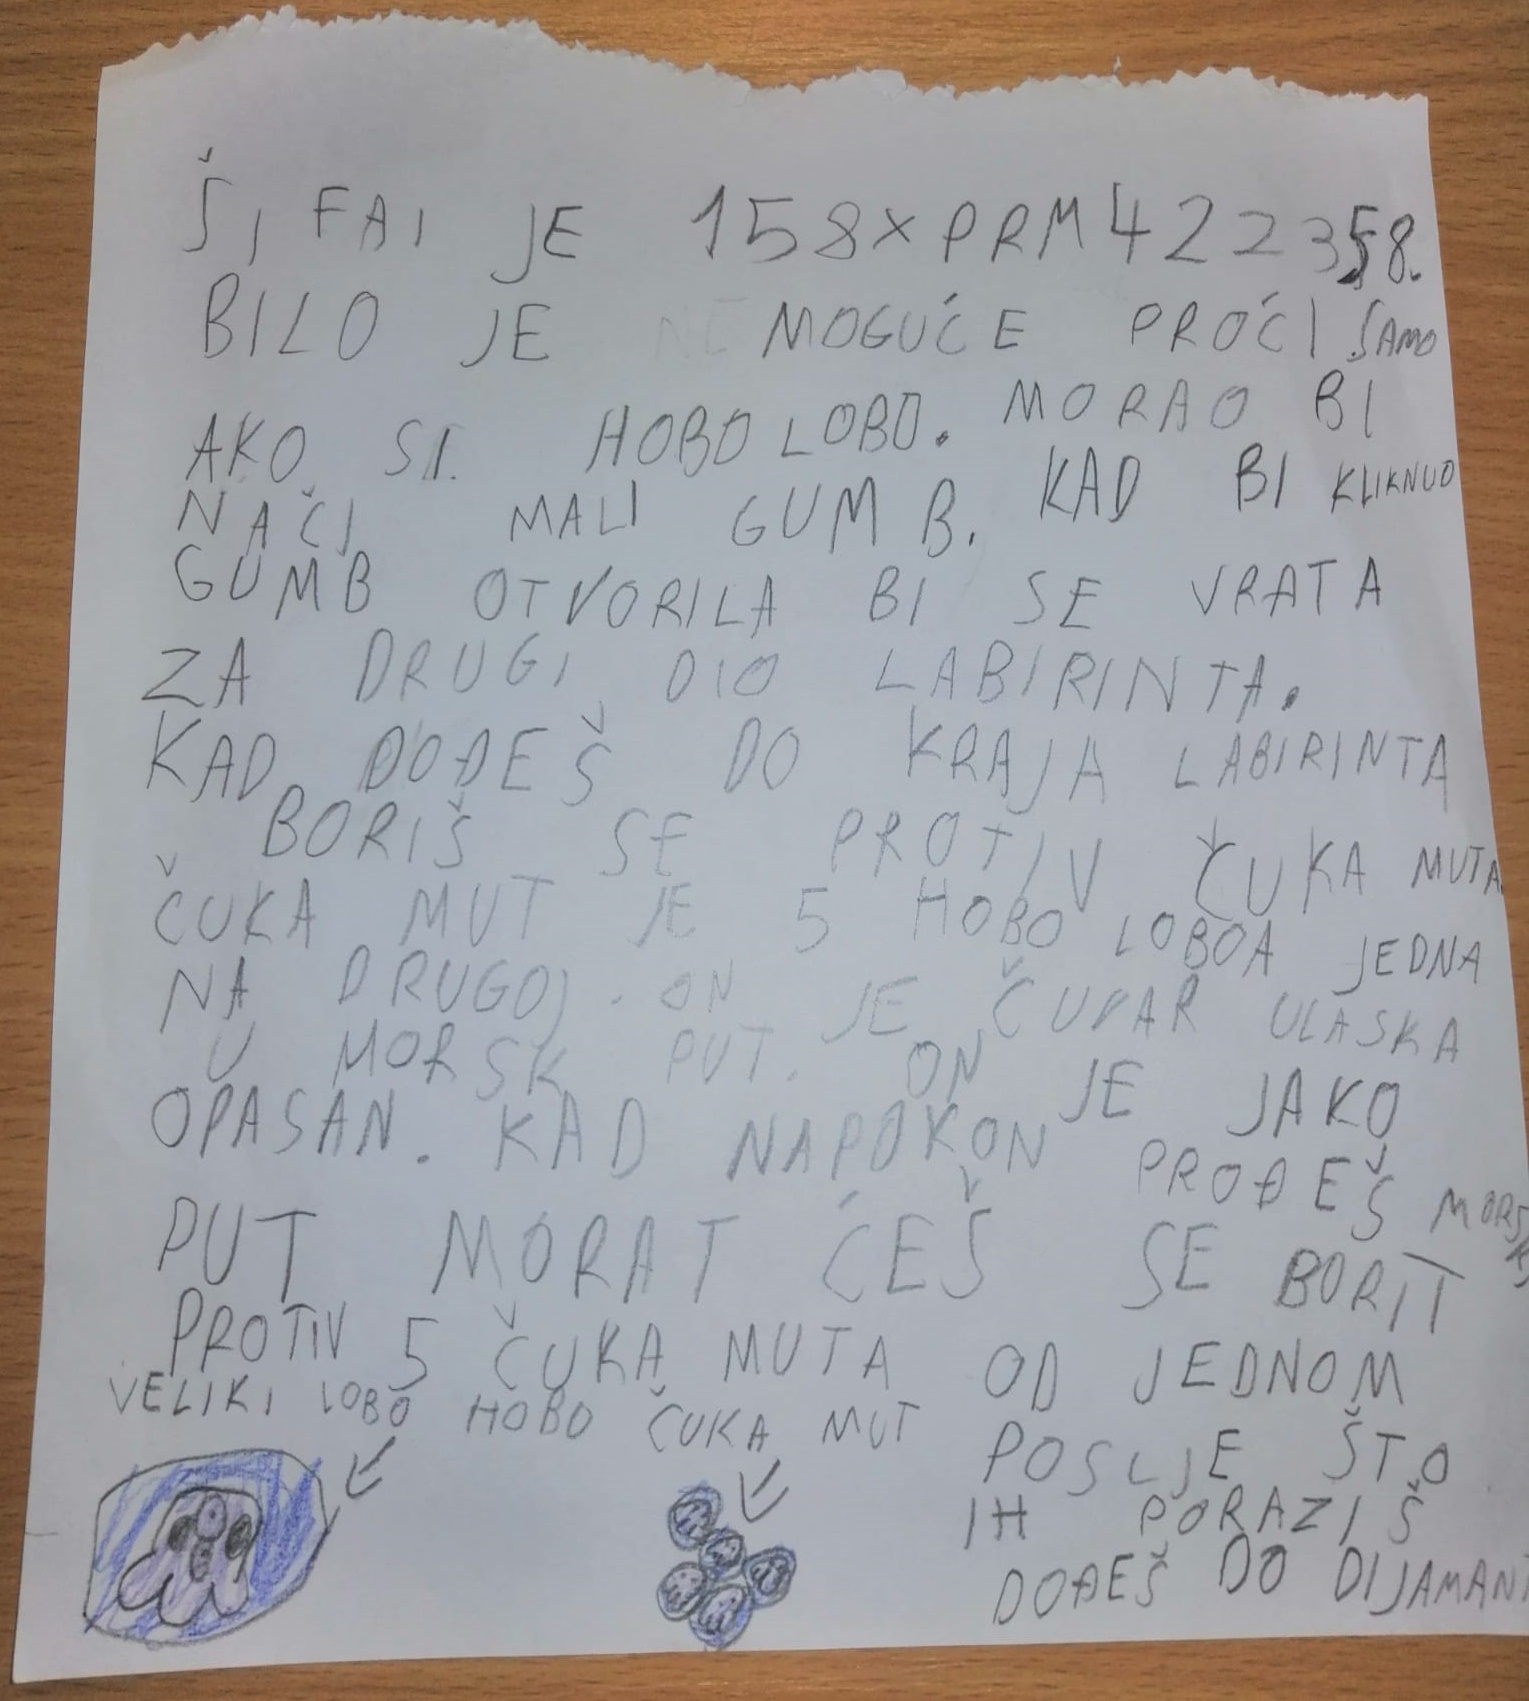 ŠIFAI JE 158XPRM422358.
BILO JE NEMOGUĆE PROĆI SAMO
AKO SI HOBO LOBO. MORAO BI
NAČI MALI GUMB. KAD BI KLIKNUO
GUMB OTVORILA BI SE VRATA
ZA DRUGI DIO LABIRINTA.
KAD DOĐEŠ DO KRAJA LABIRINTA
BORIŠ SE PROTIV ČUKA MUTA.
ČUKA MUT JE 5 HOBO LOBOA JEDNA
NA DRUGOJ. ON JE ČUVAR ULASKA
U MORSK PUT. ON JE JAKO
OPASAN. KAD NAPOKON PROĐEŠ MORSKI
PUT MORAT ĆEŠ SE BORIT
PROTIV 5 ČUKA MUTA OD JEDNOM
VELIKI LOBO HOBO ČUKA MUT
POSLJE ŠTO
IH PORAZIŠ
DOĐEŠ DO DIJAMANT